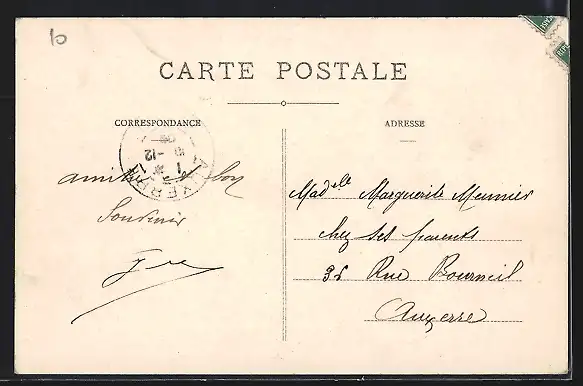 CARTE POSTALE
CORRESPONDANCE
ADRESSE
amitiés et bon
Souvenir
Mad elle Marguerite Meunier
chez ses parents
Rue Bourneil
Auxerre
AUXERRE